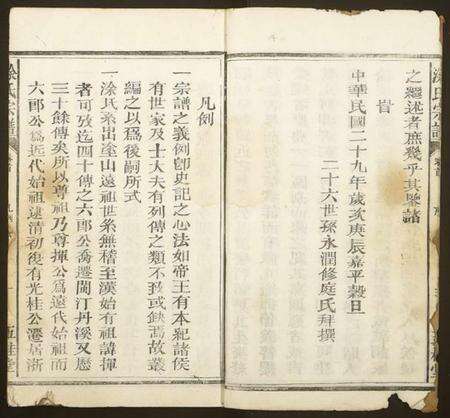 之繼述者庶幾乎其鑒諸
旹
中華民國二十九年歲次庚辰嘉平穀旦
二十六世孫永潤修庭氏拜撰
凡例
一宗譜之義例卽史記之心法如帝王有本紀諸侯
有世家及士大夫有列傳之類不敢或缺焉故叢
編之以爲後嗣所式
一涂氏系出塗山遠祖世系無稽至漢始有祖諱揮
者可攷迄四十傳之六郎公喬遷閩汀丹溪又歷
三十餘傳矣所以尊祖乃尊揮公爲遠代始祖而
六郎公爲近代始祖逮清初復有光桂公遷居浙
涂氏宗譜